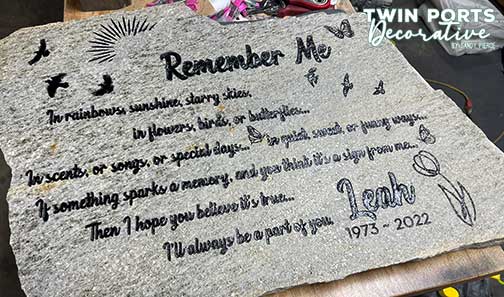 TWIN PORTS
Decorative
Remember Me
In rainbows, sunshine, starry skies,
in flowers, birds, or butterflies...
In scents, or songs, or special days... in quiet, sweet, or funny ways...
If something sparks a memory, and you think it's a sign from me...
Then I hope you believe it's true...
I'll always be a part of you.
Leah
1973 ~ 2022